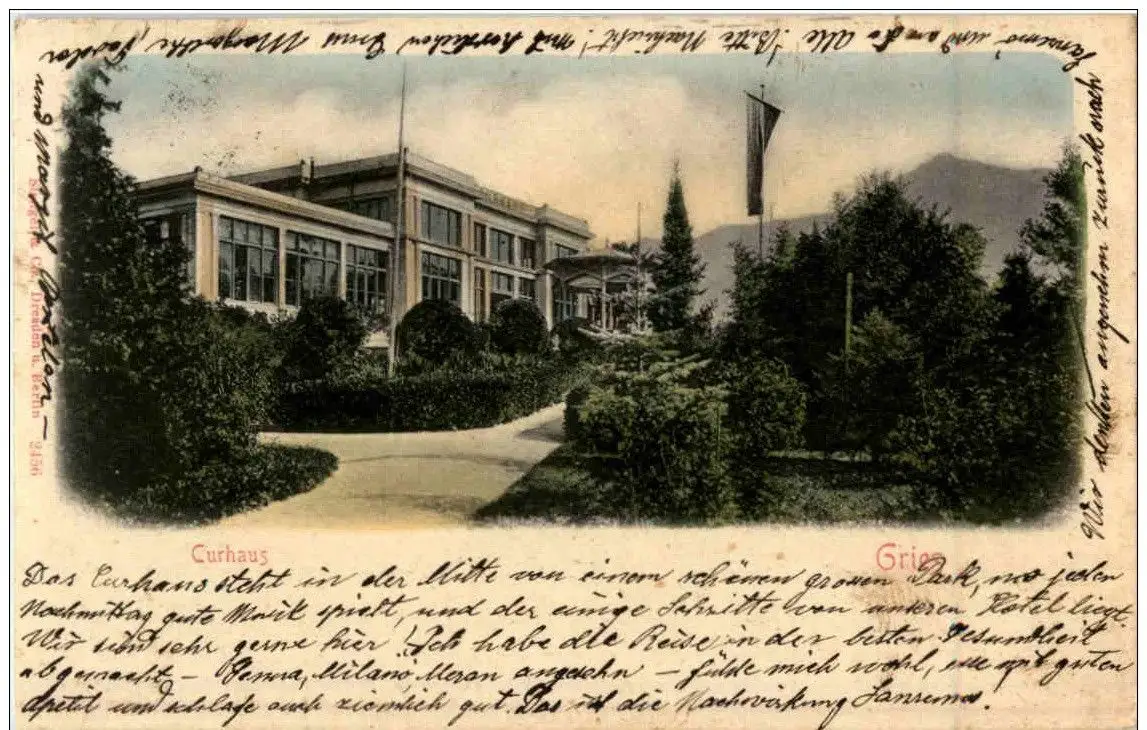 Curhaus
Gries
Das Curhaus steht in der Mitte von einem schönen grossen Park, wo jeden
Nachmittag gute Musik spielt, und der einige Schritte von unseren Hotel liegt.
Wir sind sehr gerne hier! Ich habe die Reise in der besten Gesundheit
abgemacht – Milano, Meran angesehn – fühle mich wohl, esse mit guten
Apetit und schlafe auch ziemlich gut. Das ist die Nachwirkung Sanremos!
Wir denken angenehm zurück
Sanremo und an die Alle! Bitte Nachricht! mit herzlichen Margarethe,
und
Stengel & Co., Dresden u. Berlin 2456